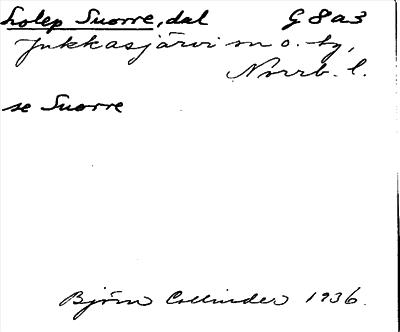 Lolep Suorre, dal G 8 a3
Jukkasjärvi sn o. tg,
Norrb. l.
se Suorre
Björn Collinder 1936.